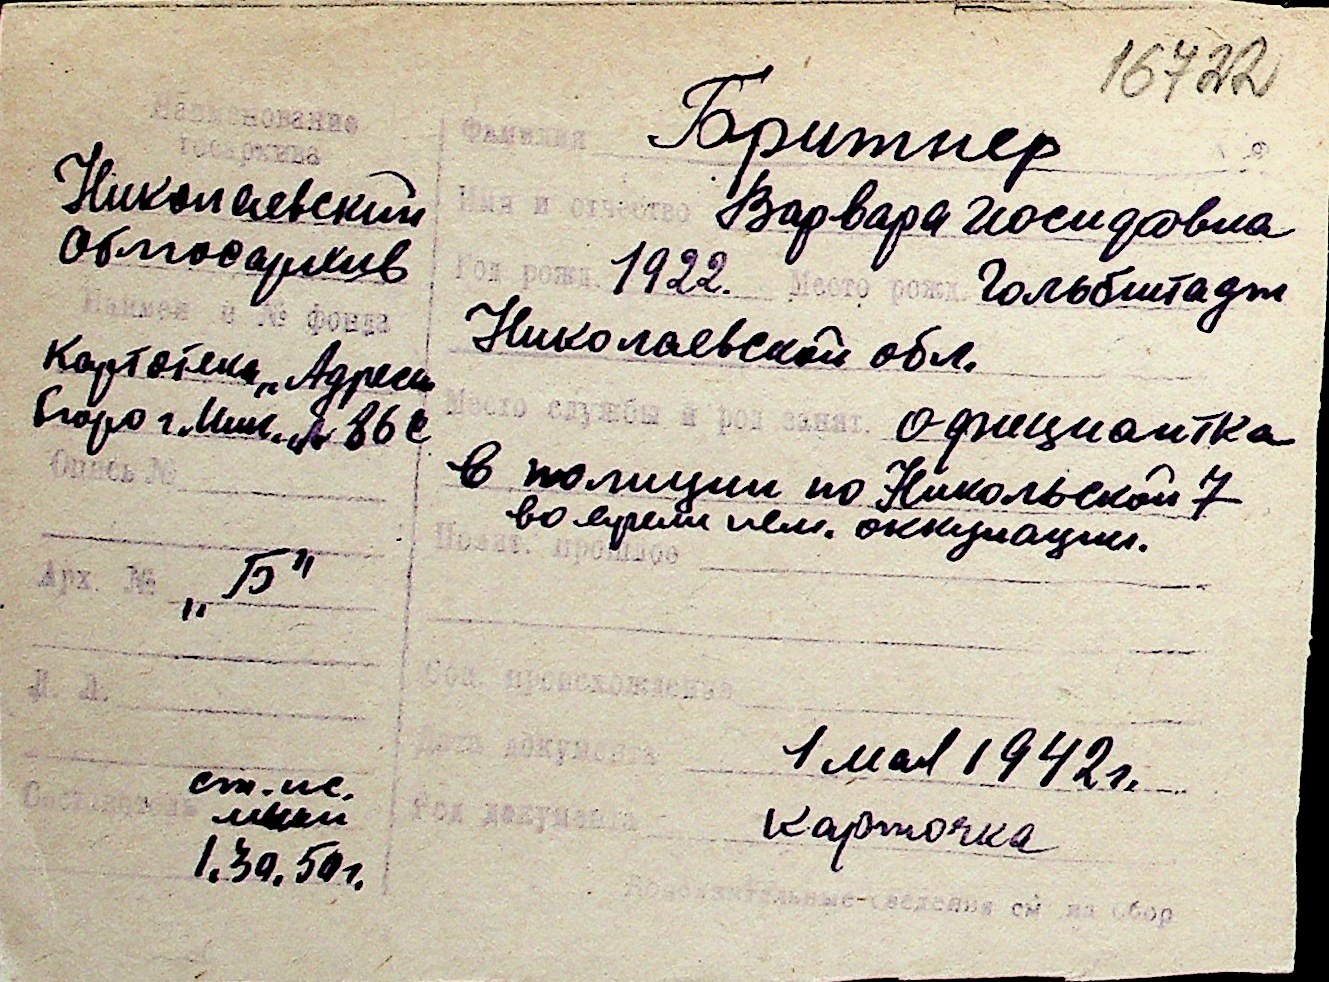 16722
Наименование
госархива
Николаевский
облгосархив
Наимен и № фонда
Картотека „Адресн
бюро г. Ник.
Опись №
Арх. № „Б"
Л. Л.
Составитель ст. ис.
1.30.50г.
Фамилия Бритнер
Имя и отчество Варвара Иосифовна
Год рожд. 1922. Место рожд. Гольбштадт
Николаевской обл.
Место службы и род занят. официантка
в полиции по Никольской 7
во время нем. оккупации.
Полит. прошлое
Соц. происхождение
Дата документа 1 мая 1942 г.
Род документа карточка
Дополнительные сведения см на обор